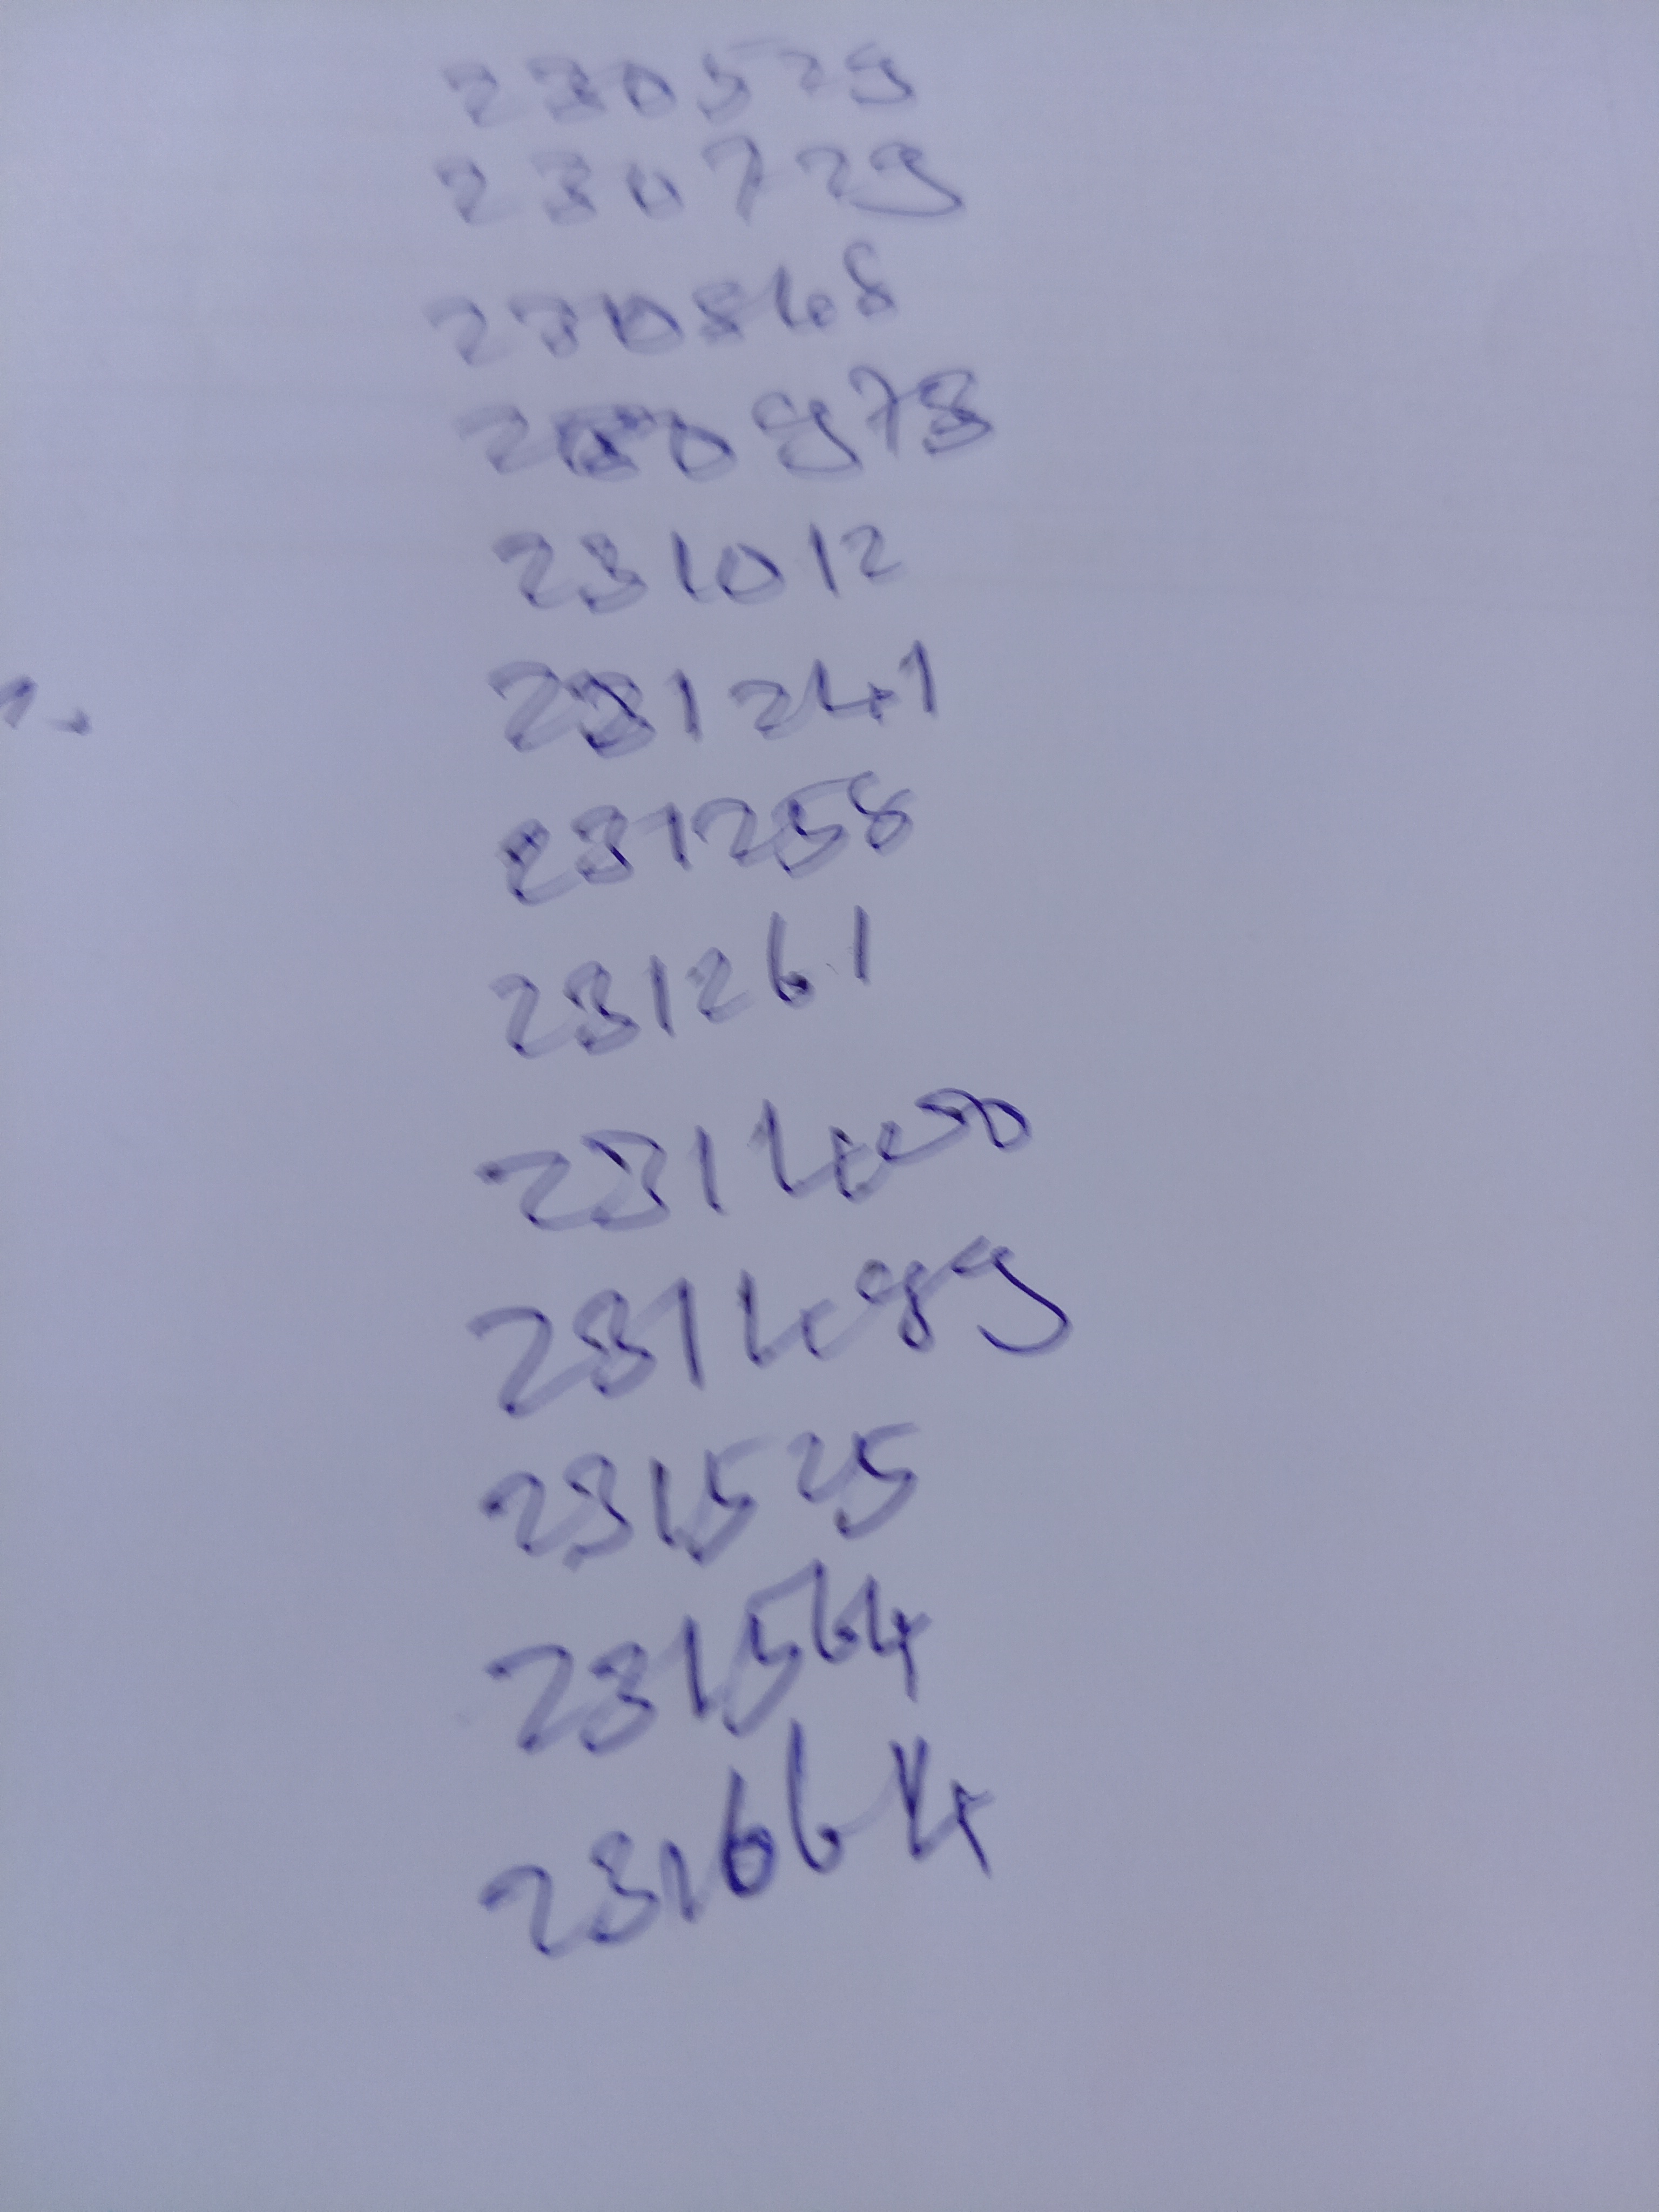 230529
230729
230848
230973
231012
231241
231258
231261
231400
231489
231525
231564
231664